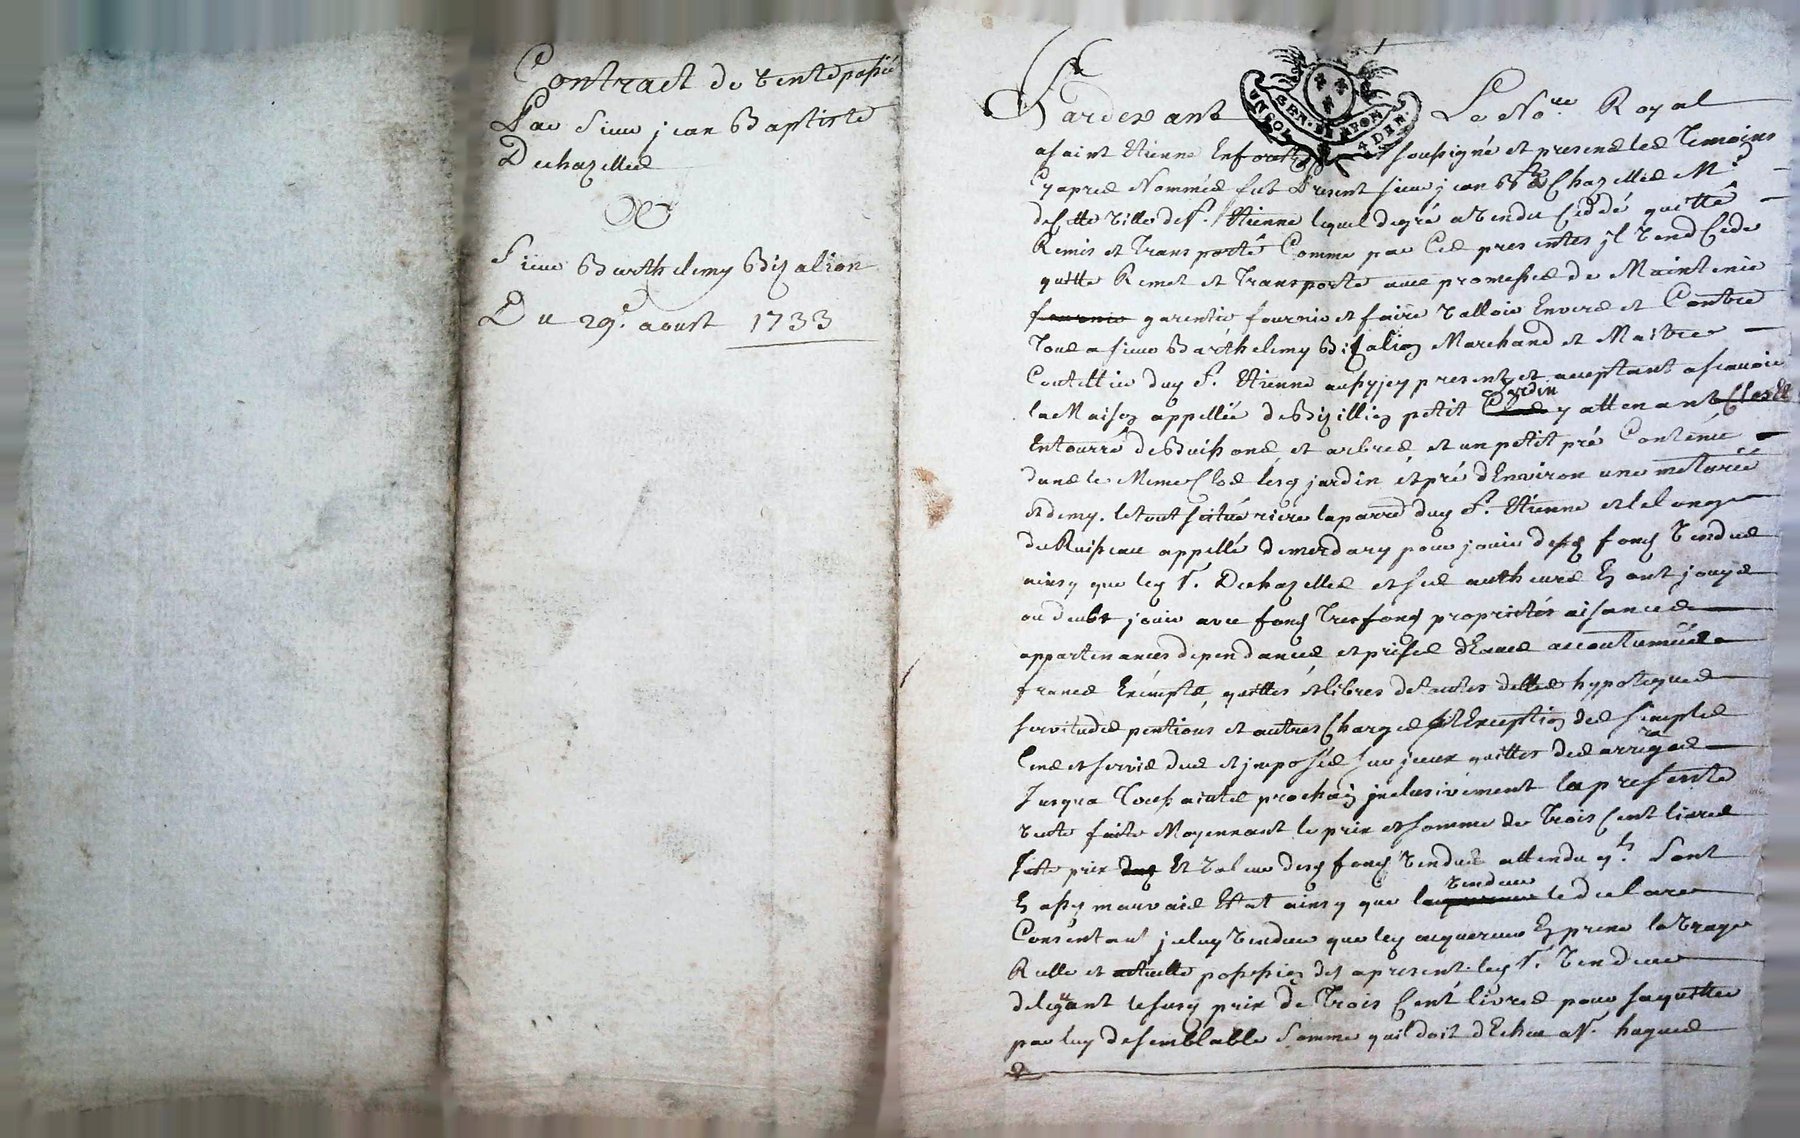 Contract de vente passé
Par Sieur jean Baptiste
Dechazelles
A
Sieur Barthelemy Bizalion
Du 29e. aoust 1733
GEN. DE LYON
UN SOL
4 DEN.
Pardevant Le Nore Royal
a saint Etienne En forest soussigné et presens les Temoins
Cy apres Nommés fut Present sieur jean Bte Chazelles Md
de Cette ville de St. Etienne lequel de gré a vendu Cédé quitté
Remis et Transporté Comme par Ces presentes jl vend Cede
quitte Remet et Transporte avec promesses de Maintenir
fournir garentir fournir et faire valloir Envers et Contre
Tous a sieur Barthelemy Bizalion Marchand et Maitre
Coutellier dud St. Etienne aussy jcy present et acceptant ascavoir
la Maison appellée de Bizillion petit jardin y attenant Clos et
Entourré de Buissons et arbres et un petit pré Contenu
dans le Meme Clos lesd jardin et pré d'Environ une meterée
et demy. le tout situé riere la parre dud St. Etienne et le long
du Ruisseau appellé de merdary pour jouir desd fonds vendus
ainsy que led Sr. Dechazelles et ses autheurs En ont jouys
ou deubt jouir avec fonds Tresfonds proprietés aisances
appartenances dependances et prises d'Eaues accoutumées
francs Exempts, quittes et libres de toutes dettes hypoteques
servitudes pentions et autres Charges a l'Exception des simples
Cens et servis dus et jmposés sur jceux quittes des arrérages
Jusqu'a Toussaints prochain jnclusivement la presente
vente faite Moyennant le prix et somme de Trois Cent livres
Juste prix et valeur desd fonds vendus attendu qls. sont
En assez mauvais Etat ainsy que le vendeur le declare
Consentant jceluy vendeur que led acquereur En prene la vraye
Reelle et actuelle possession des apresent. led Sr. vendeur
deleguant le susd prix de Trois Cent livres pour s'aquitter
par luy de semblable somme quil doit d'Echue a Sr. hugues